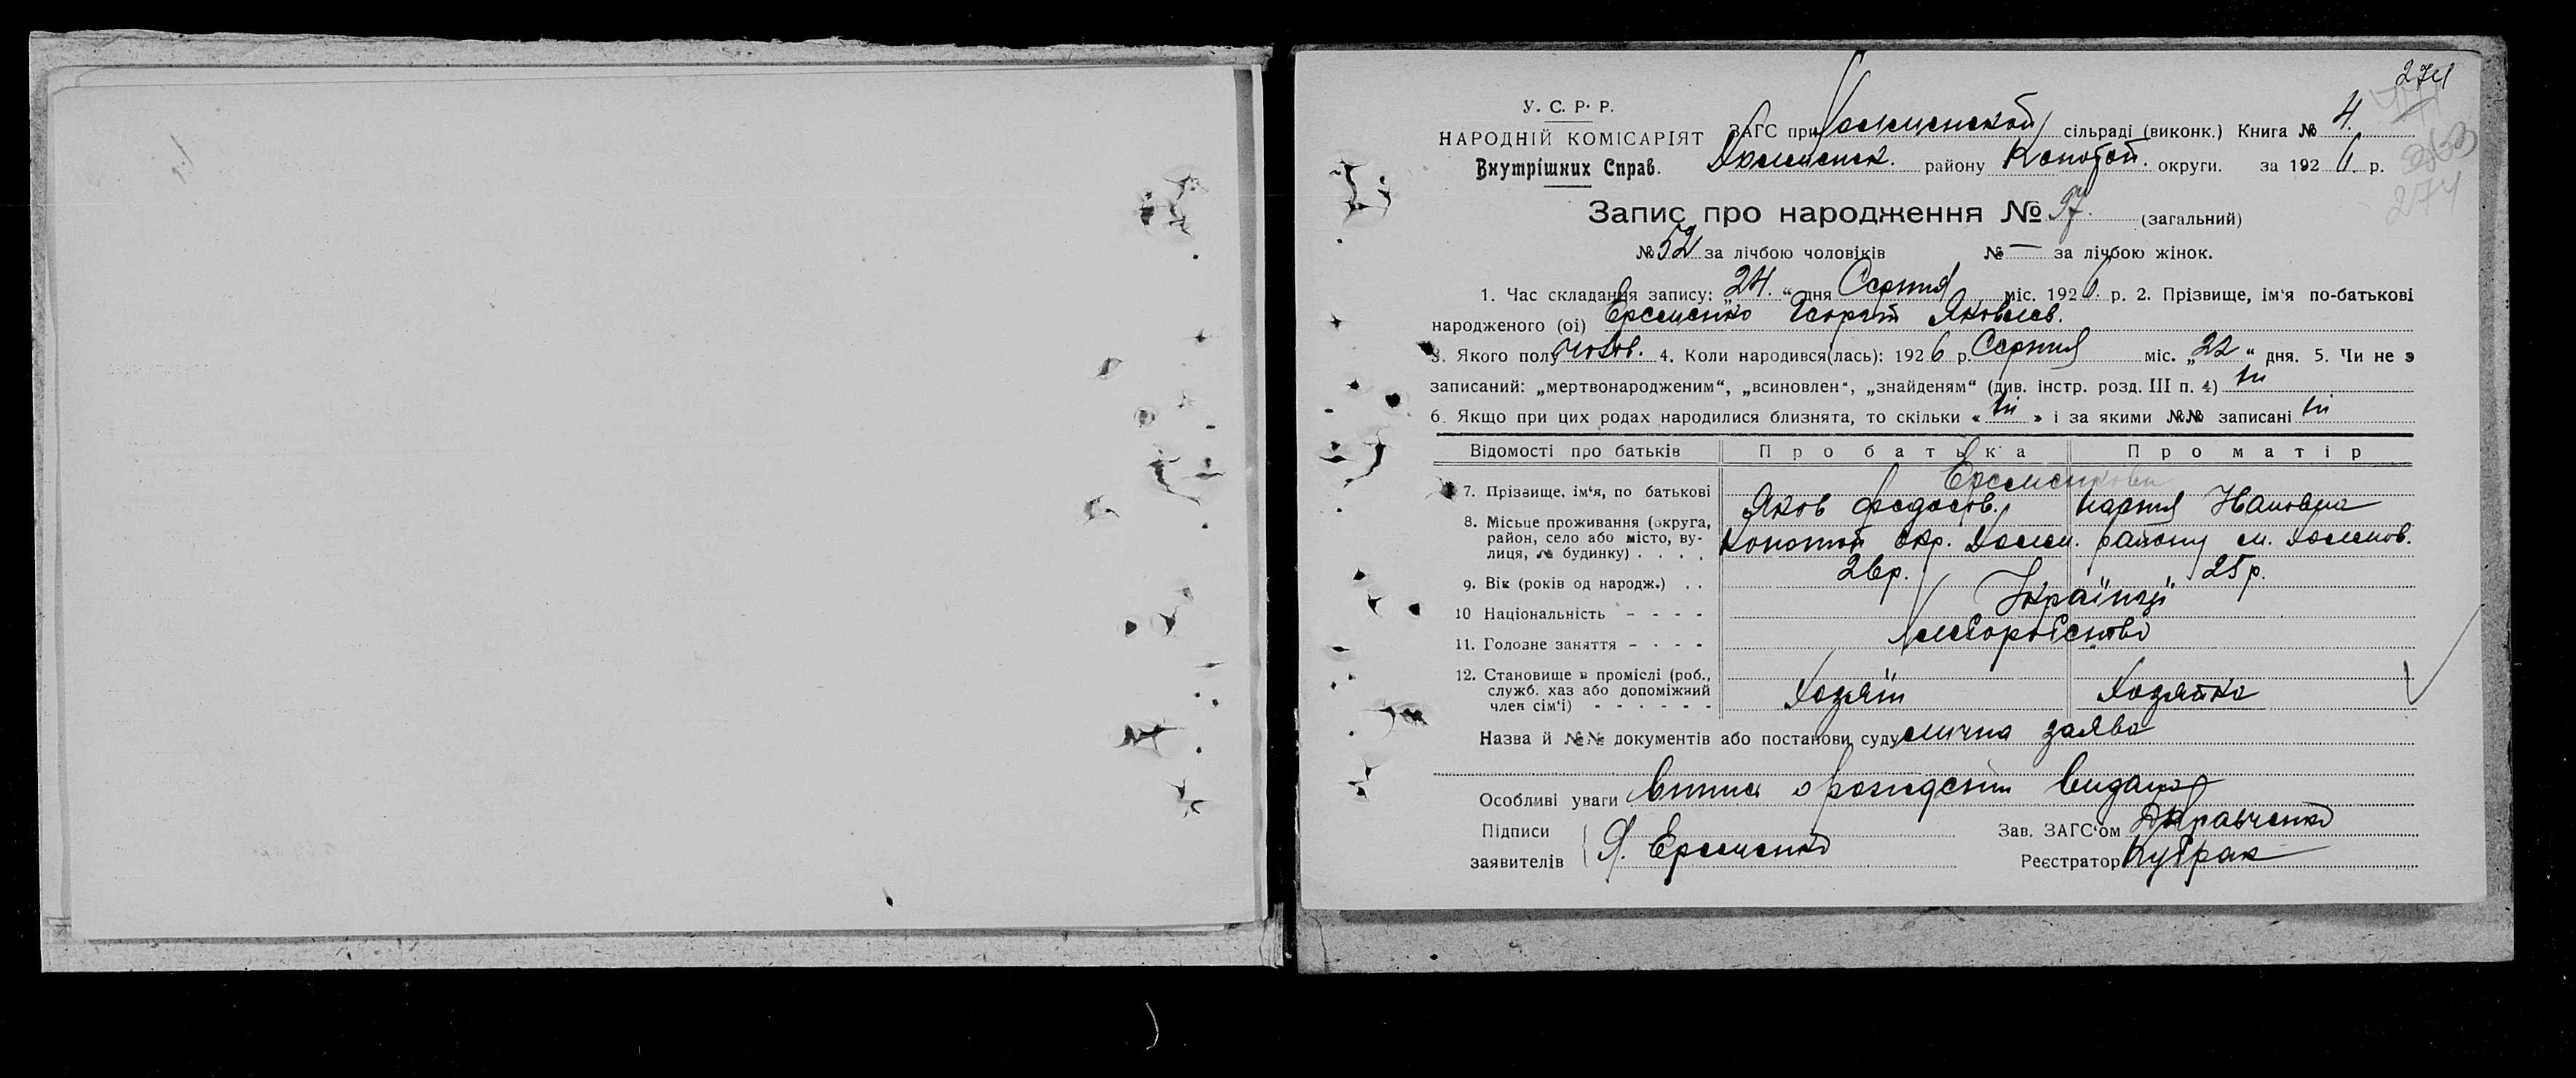 274
У. С. Р. Р.
НАРОДНІЙ КОМІСАРІЯТ
Внутрішних Справ.
ЗАГС при сільраді (виконк.) Книга № 4.
району Конотоп. округи. за 1926 р.
274
Запис про народження № 97. (загальний)
№ 52 за лічбою чоловіків № — за лічбою жінок.
1. Час складання запису: „24.“ дня Серпня міс. 1926 р. 2. Прізвище, ім'я по-батькові
народженого (ої) Еременко Георгій Яковлев.
3. Якого полу чолов. 4. Коли народився(лась): 1926 р. Серпня міс. „22“ дня. 5. Чи не є
записаний: „мертвонародженим“, „всиновлен“, „знайденям“ (див. інстр. розд. III п. 4) ні
6. Якщо при цих родах народилися близнята, то скільки « ні » і за якими №№ записані ні
Відомості про батьків Про батька Про матір
Еременкови
7. Прізвище, ім'я, по батькові Яков Федосов. Мария Ивановна
8. Місьце проживання (округа, район, село або місто, ву-лиця, № будинку) . . . . Конотоп окр. району м.
9. Вік (років од народж.) . . 26р. 25р.
10 Національність - - - - Українці
11. Головне заняття - - - - хлеборобство
12. Становище в промислі (роб., служб. хаз або допоміжний член сім'ї) - - - - - - Хозяїн Хозяйка
Назва й №№ документів або постанови суду лична заява
Особливі уваги о видана
Підписи заявителів Я. Еременко
Зав. ЗАГС'ом Кравченко
Реєстратор Кубрак